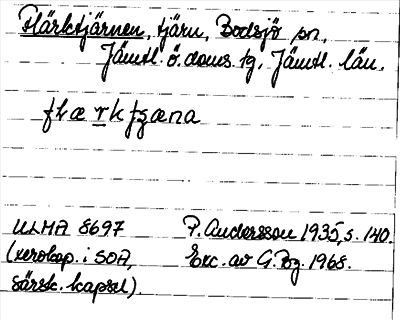 Flärktjärnen, tjärn, Bodsjö sn,
Jämtl. ö. doms. tg. Jämtl. län.
flæṛkʃʒæna
ULMA 8697 P. Andersson 1935, s. 140.
(xerokop. i SOA, Exc. av G. Bg. 1968.
särsk. kapsel).